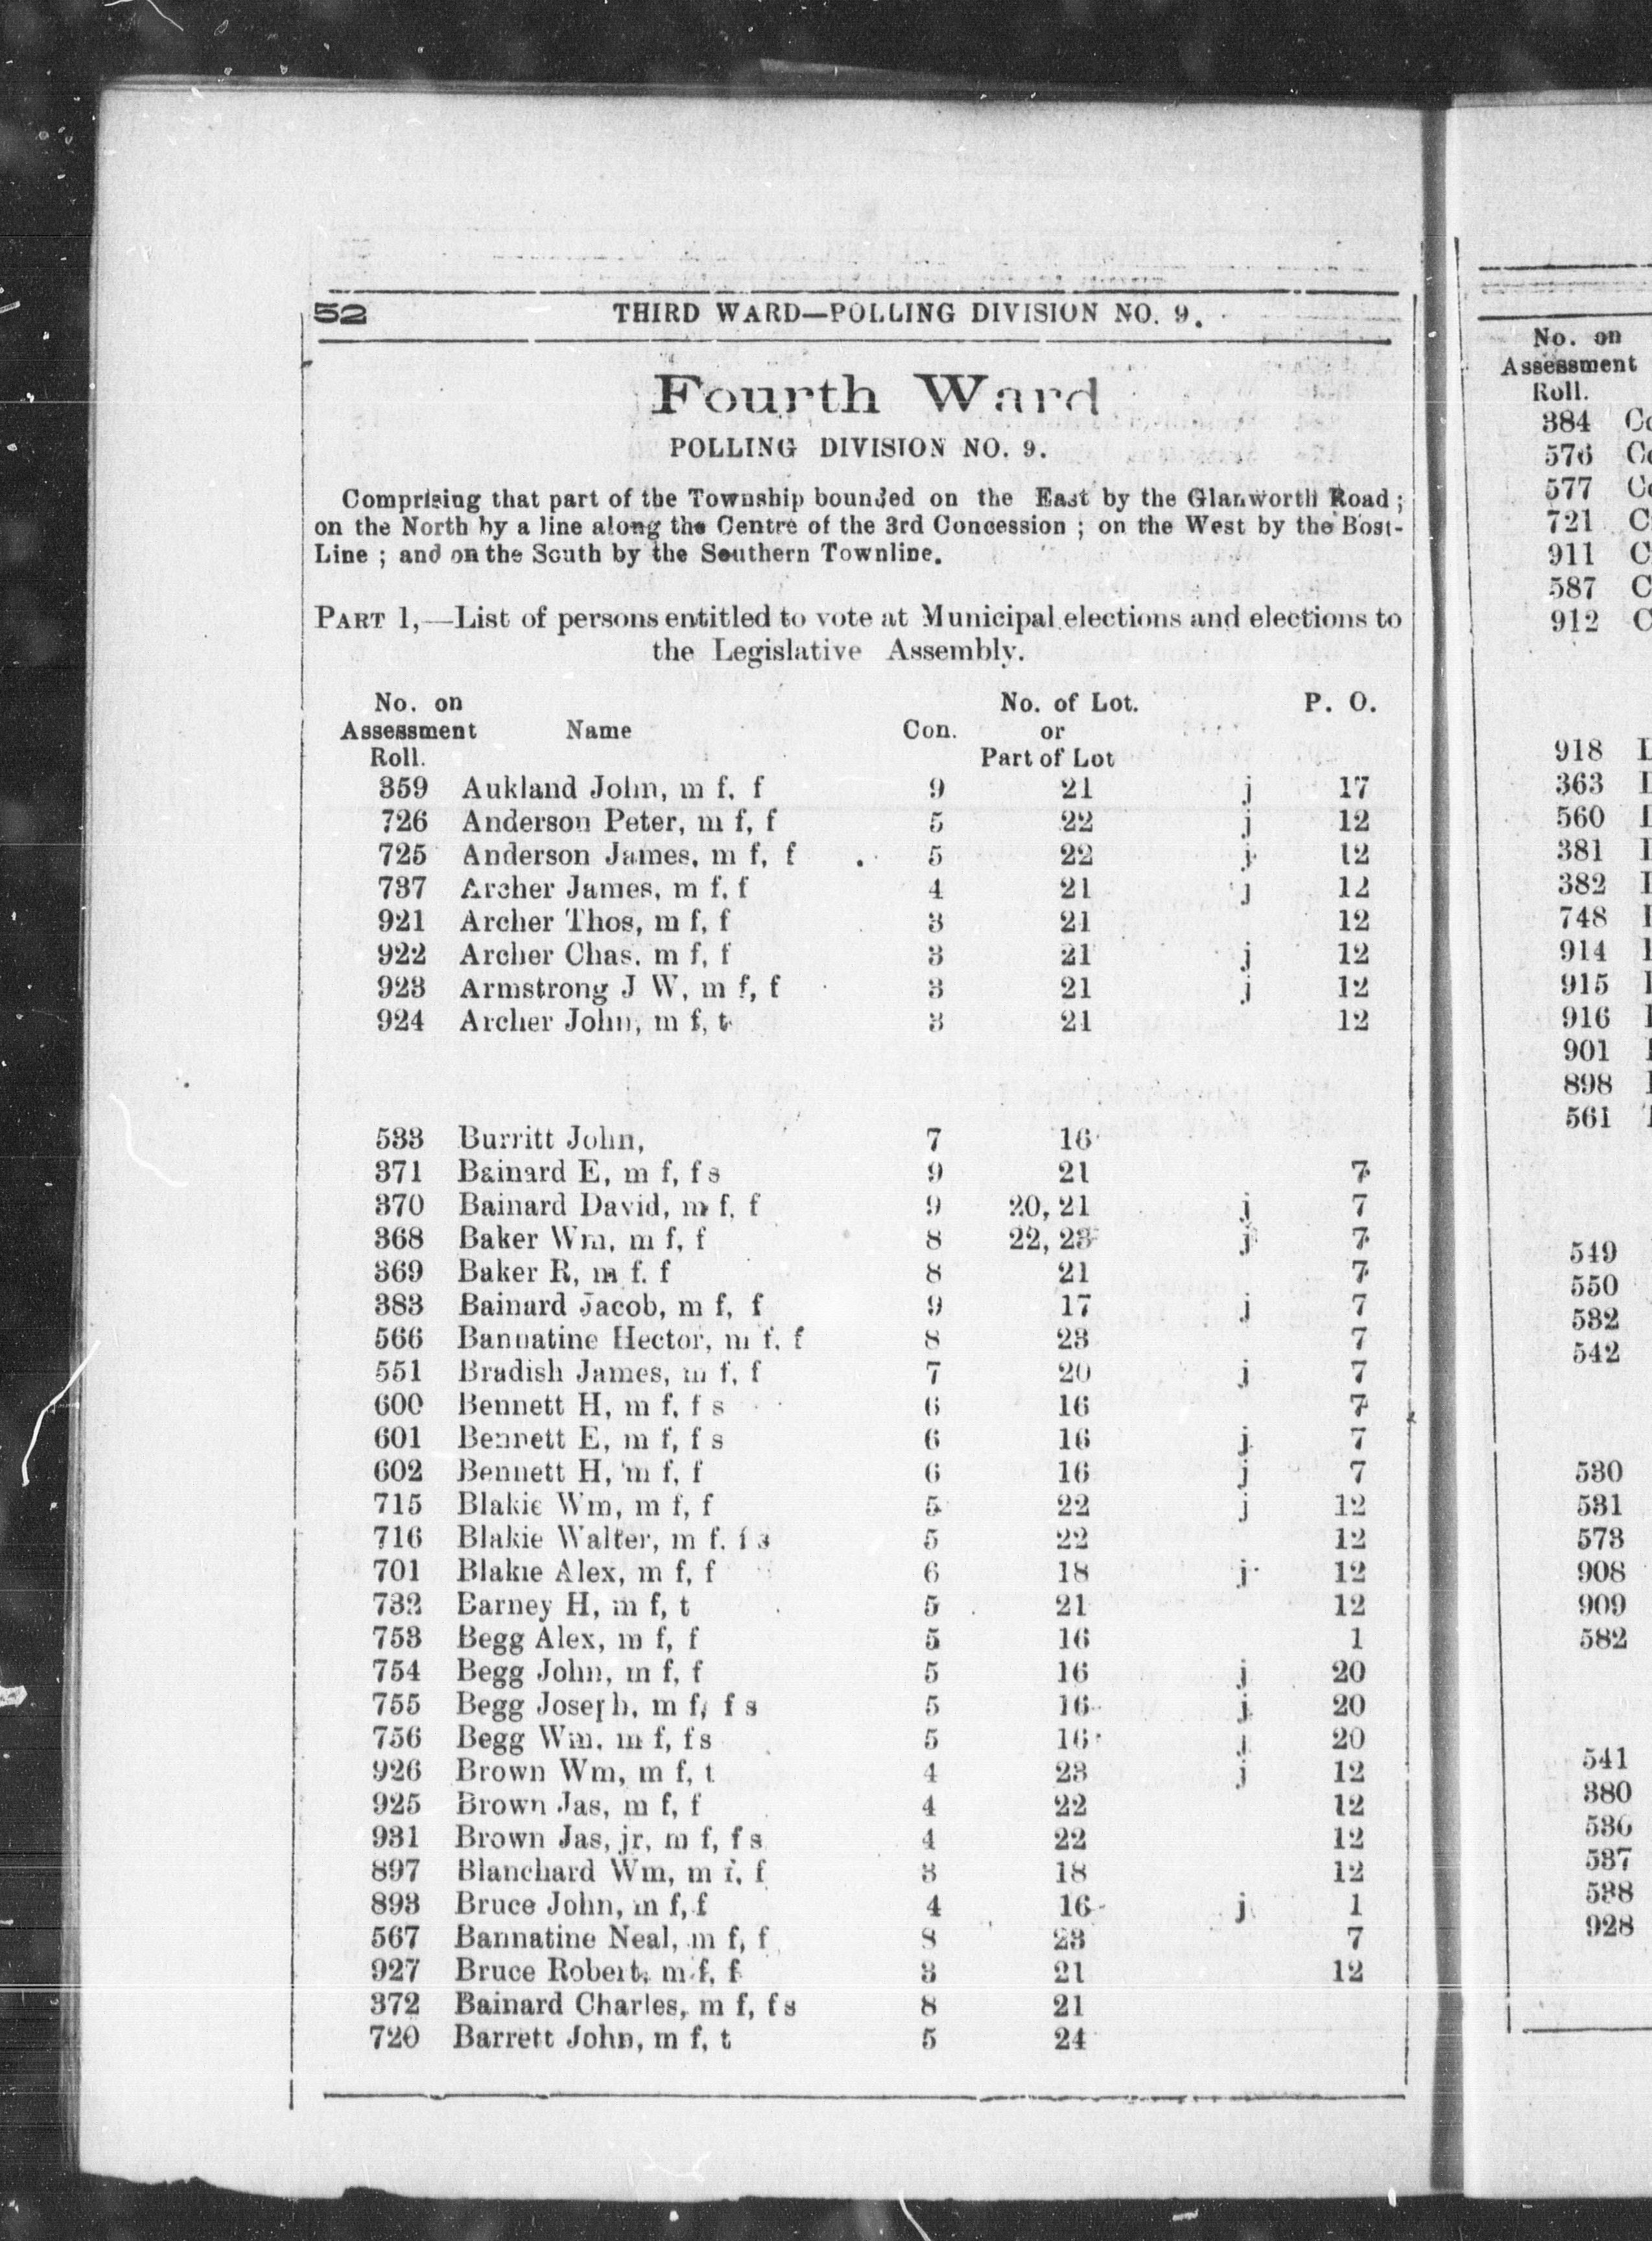 52 THIRD WARD—POLLING DIVISION NO. 9.
Fourth Ward
POLLING DIVISION NO. 9.
Comprising that part of the Township bounded on the East by the Glanworth Road;
on the North by a line along the Centre of the 3rd Concession ; on the West by the Bost-
Line ; and on the South by the Southern Townline.
PART 1,—List of persons entitled to vote at Municipal elections and elections to
the Legislative Assembly.
No. on No. of Lot. P. O.
Assessment Name Con. or
Roll. Part of Lot
359 Aukland John, m f, f 9 21 j 17
726 Anderson Peter, m f, f 5 22 j 12
725 Anderson James, m f, f 5 22 j 12
737 Archer James, m f, f 4 21 j 12
921 Archer Thos, m f, f 3 21 12
922 Archer Chas. m f, f 3 21 j 12
923 Armstrong J W, m f, f 3 21 j 12
924 Archer John, m f, t 3 21 12
533 Burritt John, 7 16
371 Bainard E, m f, f s 9 21 7
370 Bainard David, m f, f 9 20, 21 j 7
368 Baker Wm, m f, f 8 22, 23 j 7
369 Baker R, m f. f 8 21 7
383 Bainard Jacob, m f, f 9 17 j 7
566 Bannatine Hector, m f, f 8 23 7
551 Bradish James, m f, f 7 20 j 7
600 Bennett H, m f, f s 6 16 7
601 Bennett E, m f, f s 6 16 j 7
602 Bennett H, m f, f 6 16 j 7
715 Blakie Wm, m f, f 5 22 j 12
716 Blakie Walter, m f. f s 5 22 12
701 Blakie Alex, m f, f 6 18 j 12
732 Barney H, m f, t 5 21 12
753 Begg Alex, m f, f 5 16 1
754 Begg John, m f, f 5 16 j 20
755 Begg Joseph, m f, f s 5 16 j 20
756 Begg Wm, m f, f s 5 16 j 20
926 Brown Wm, m f, t 4 23 j 12
925 Brown Jas, m f, f 4 22 12
931 Brown Jas, jr, m f, f s 4 22 12
897 Blanchard Wm, m f, f 3 18 12
893 Bruce John, m f, f 4 16 j 1
567 Bannatine Neal, m f, f 8 23 7
927 Bruce Robert, m f, f 3 21 12
372 Bainard Charles, m f, f s 8 21
720 Barrett John, m f, t 5 24
No. on
Assessment
Roll.
384
576
577
721
911
587
912
918
363
560
381
382
748
914
915
916
901
898
561
549
550
532
542
530
531
573
908
909
582
541
380
536
537
538
928